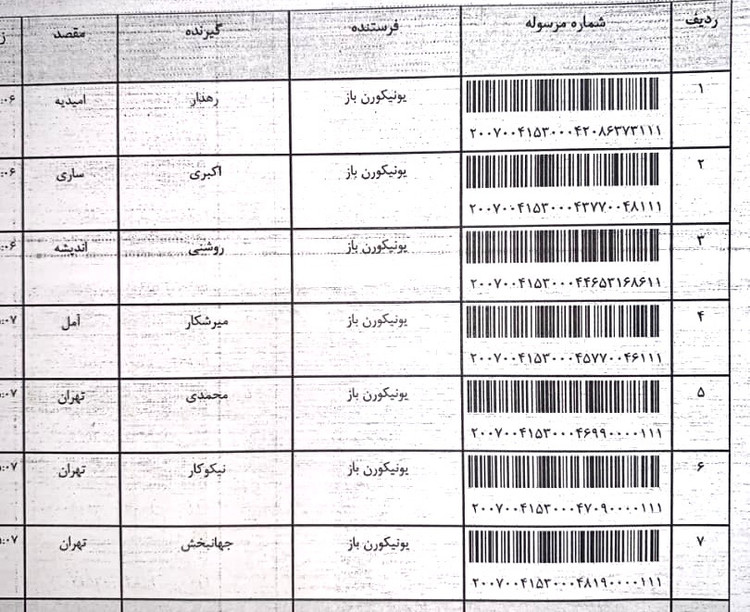 ردیف شماره مرسوله فرستنده گیرنده مقصد
۱ ۲۰۰۷۰۰۴۱۵۳۰۰۰۴۲۰۸۶۳۷۳۱۱۱ یونیکورن باز رهدار امیدیه
۲ ۲۰۰۷۰۰۴۱۵۳۰۰۰۴۳۷۷۰۰۴۸۱۱۱ یونیکورن باز اکبری ساری
۳ ۲۰۰۷۰۰۴۱۵۳۰۰۰۴۴۶۵۳۱۶۸۶۱۱ یونیکورن باز روشنی اندیشه
۴ ۲۰۰۷۰۰۴۱۵۳۰۰۰۴۵۷۷۰۰۴۶۱۱۱ یونیکورن باز میرشکار آمل
۵ ۲۰۰۷۰۰۴۱۵۳۰۰۰۴۶۹۹۰۰۰۰۱۱۱ یونیکورن باز محمدی تهران
۶ ۲۰۰۷۰۰۴۱۵۳۰۰۰۴۷۰۹۰۰۰۰۱۱۱ یونیکورن باز نیکوکار تهران
۷ ۲۰۰۷۰۰۴۱۵۳۰۰۰۴۸۱۹۰۰۰۰۱۱۱ یونیکورن باز جهانبخش تهران